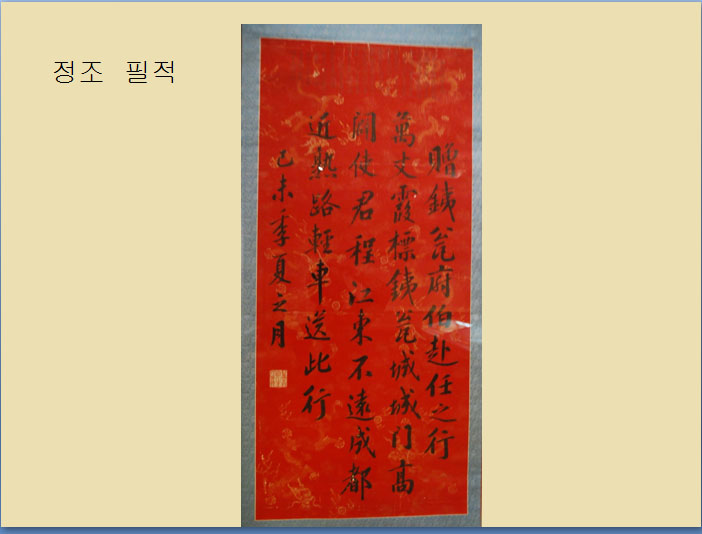 정조 필적
贈銕瓮府伯赴任之行
萬丈霞標銕瓮城城門高
開使君程江東不遠成都
近熟路輕車送此行
己未季夏之月